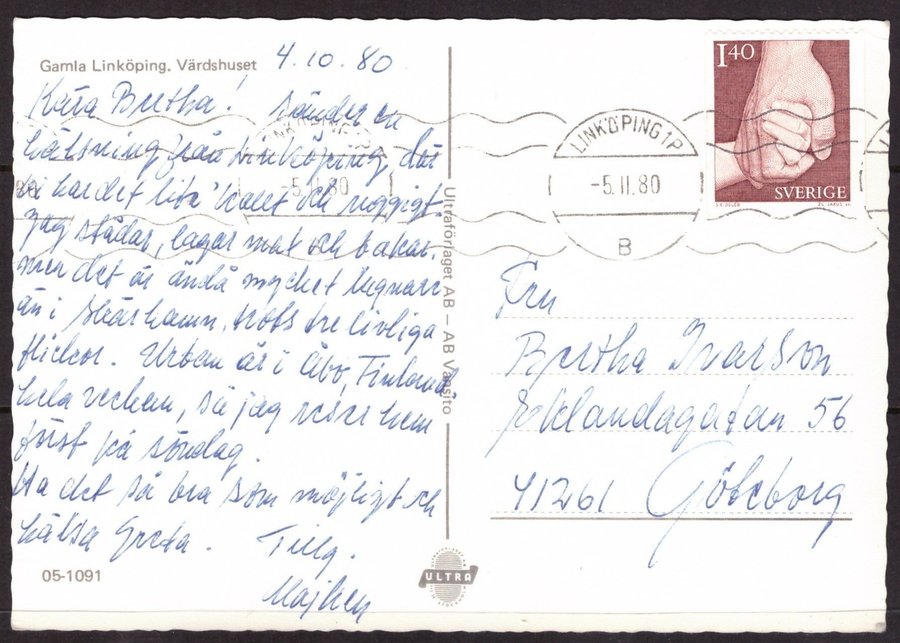 Gamla Linköping. Värdshuset
4.10.80
Kära Bertha! Sänder en
hälsning från Linköping, där
vi har det lita kallt och ruggigt.
Jag städar, lagar mat och bakar,
men det är ändå mycket lugnare
än i Skärhamn, trots tre livliga
flickor. är i Åbo, Finland
hela veckan, så jag reser hem
först på söndag.
Ha det så bra som möjligt och
hälsa Greta. Tillg.
Majken
05-1091
Ultraförlaget AB – AB Vansito
ULTRA
LINKÖPING 1P
-5.11.80
B
LINKÖPING
-5.11.80
80
1.40
SVERIGE
Fru
Bertha Ivarson
Eklandagatan 56
41261 Göteborg